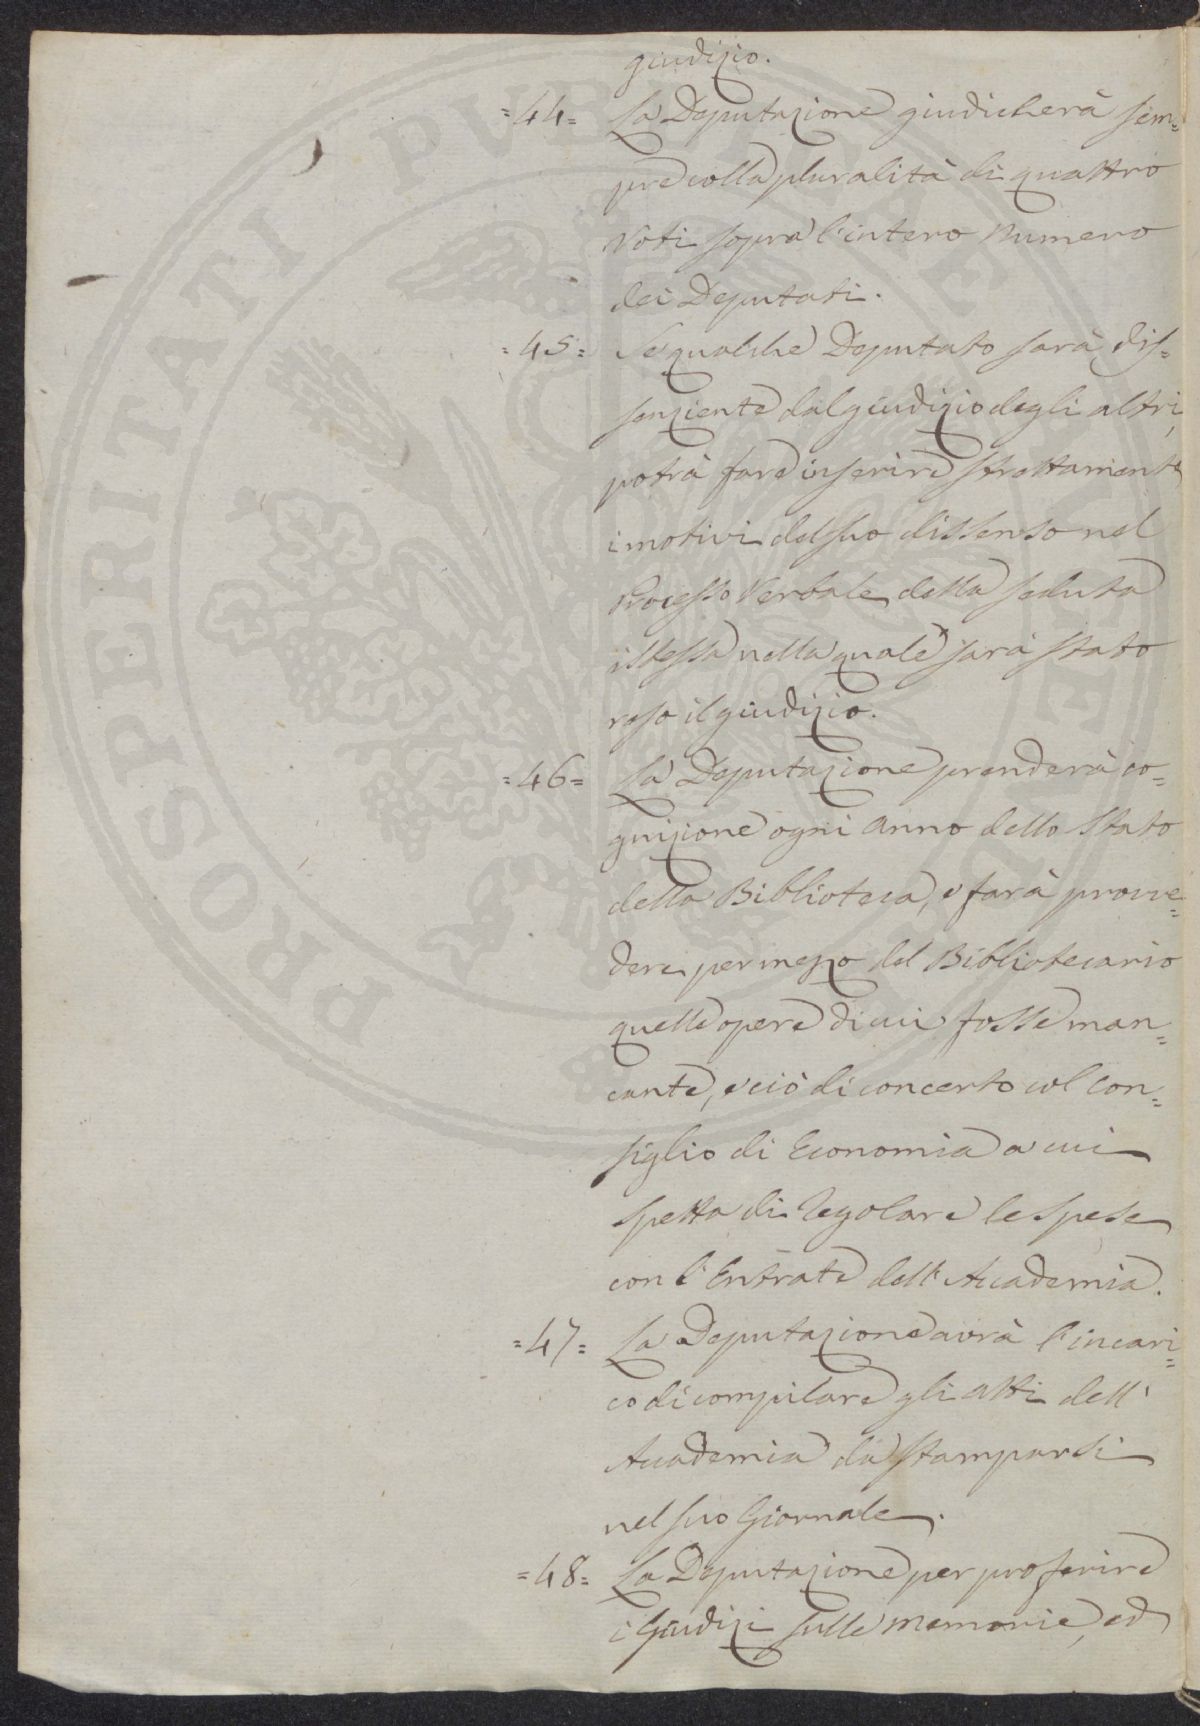 giudizio.
=44= La Deputazione giudicherà sem=
pre colla pluralità di quattro
Voti sopra l'intero Numero
dei Deputati.
=45= Se qualche Deputato sarà dis=
senziente dal giudizio degli altri,
potrà fare inserire strettamente
i motivi del suo dissenso nel
Processo Verbale della seduta
istessa nella quale sarà stato
reso il giudizio.
=46= La Deputazione prenderà co=
gnizione ogni anno dello Stato
della Biblioteca, e farà provve=
dere per mezzo del Bibliotecario
quelle opere di cui fosse man=
cante, e ciò di concerto col Con=
siglio di Economia a cui
spetta di Regolare le spese
con l'Entrate dell'Accademia.
=47= La Deputazione avrà l'incari=
co di compilare gli atti dell'
Accademia da stamparsi
nel suo Giornale.
=48= La Deputazione per proferire
i Giudizi sulle memorie, ed
PROSPERITATI PUBLICAE AUGENDAE